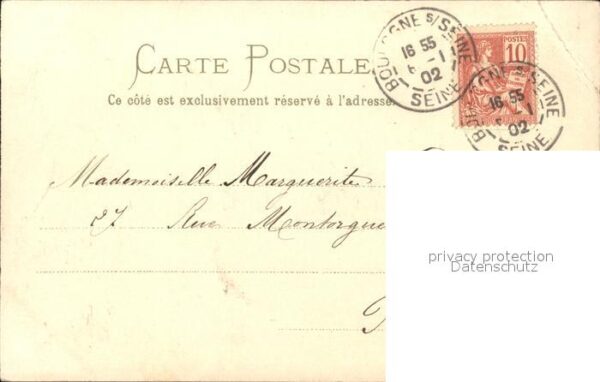 CARTE POSTALE
BOULOGNE S/SEINE
16 55
6 - 1
02
SEINE
POSTES
10
Ce côté est exclusivement réservé à l'adresse
16 55
- 1
02
SEINE
Mademoiselle Marguerite
27 Rue Montorgue
privacy protection
Datenschutz